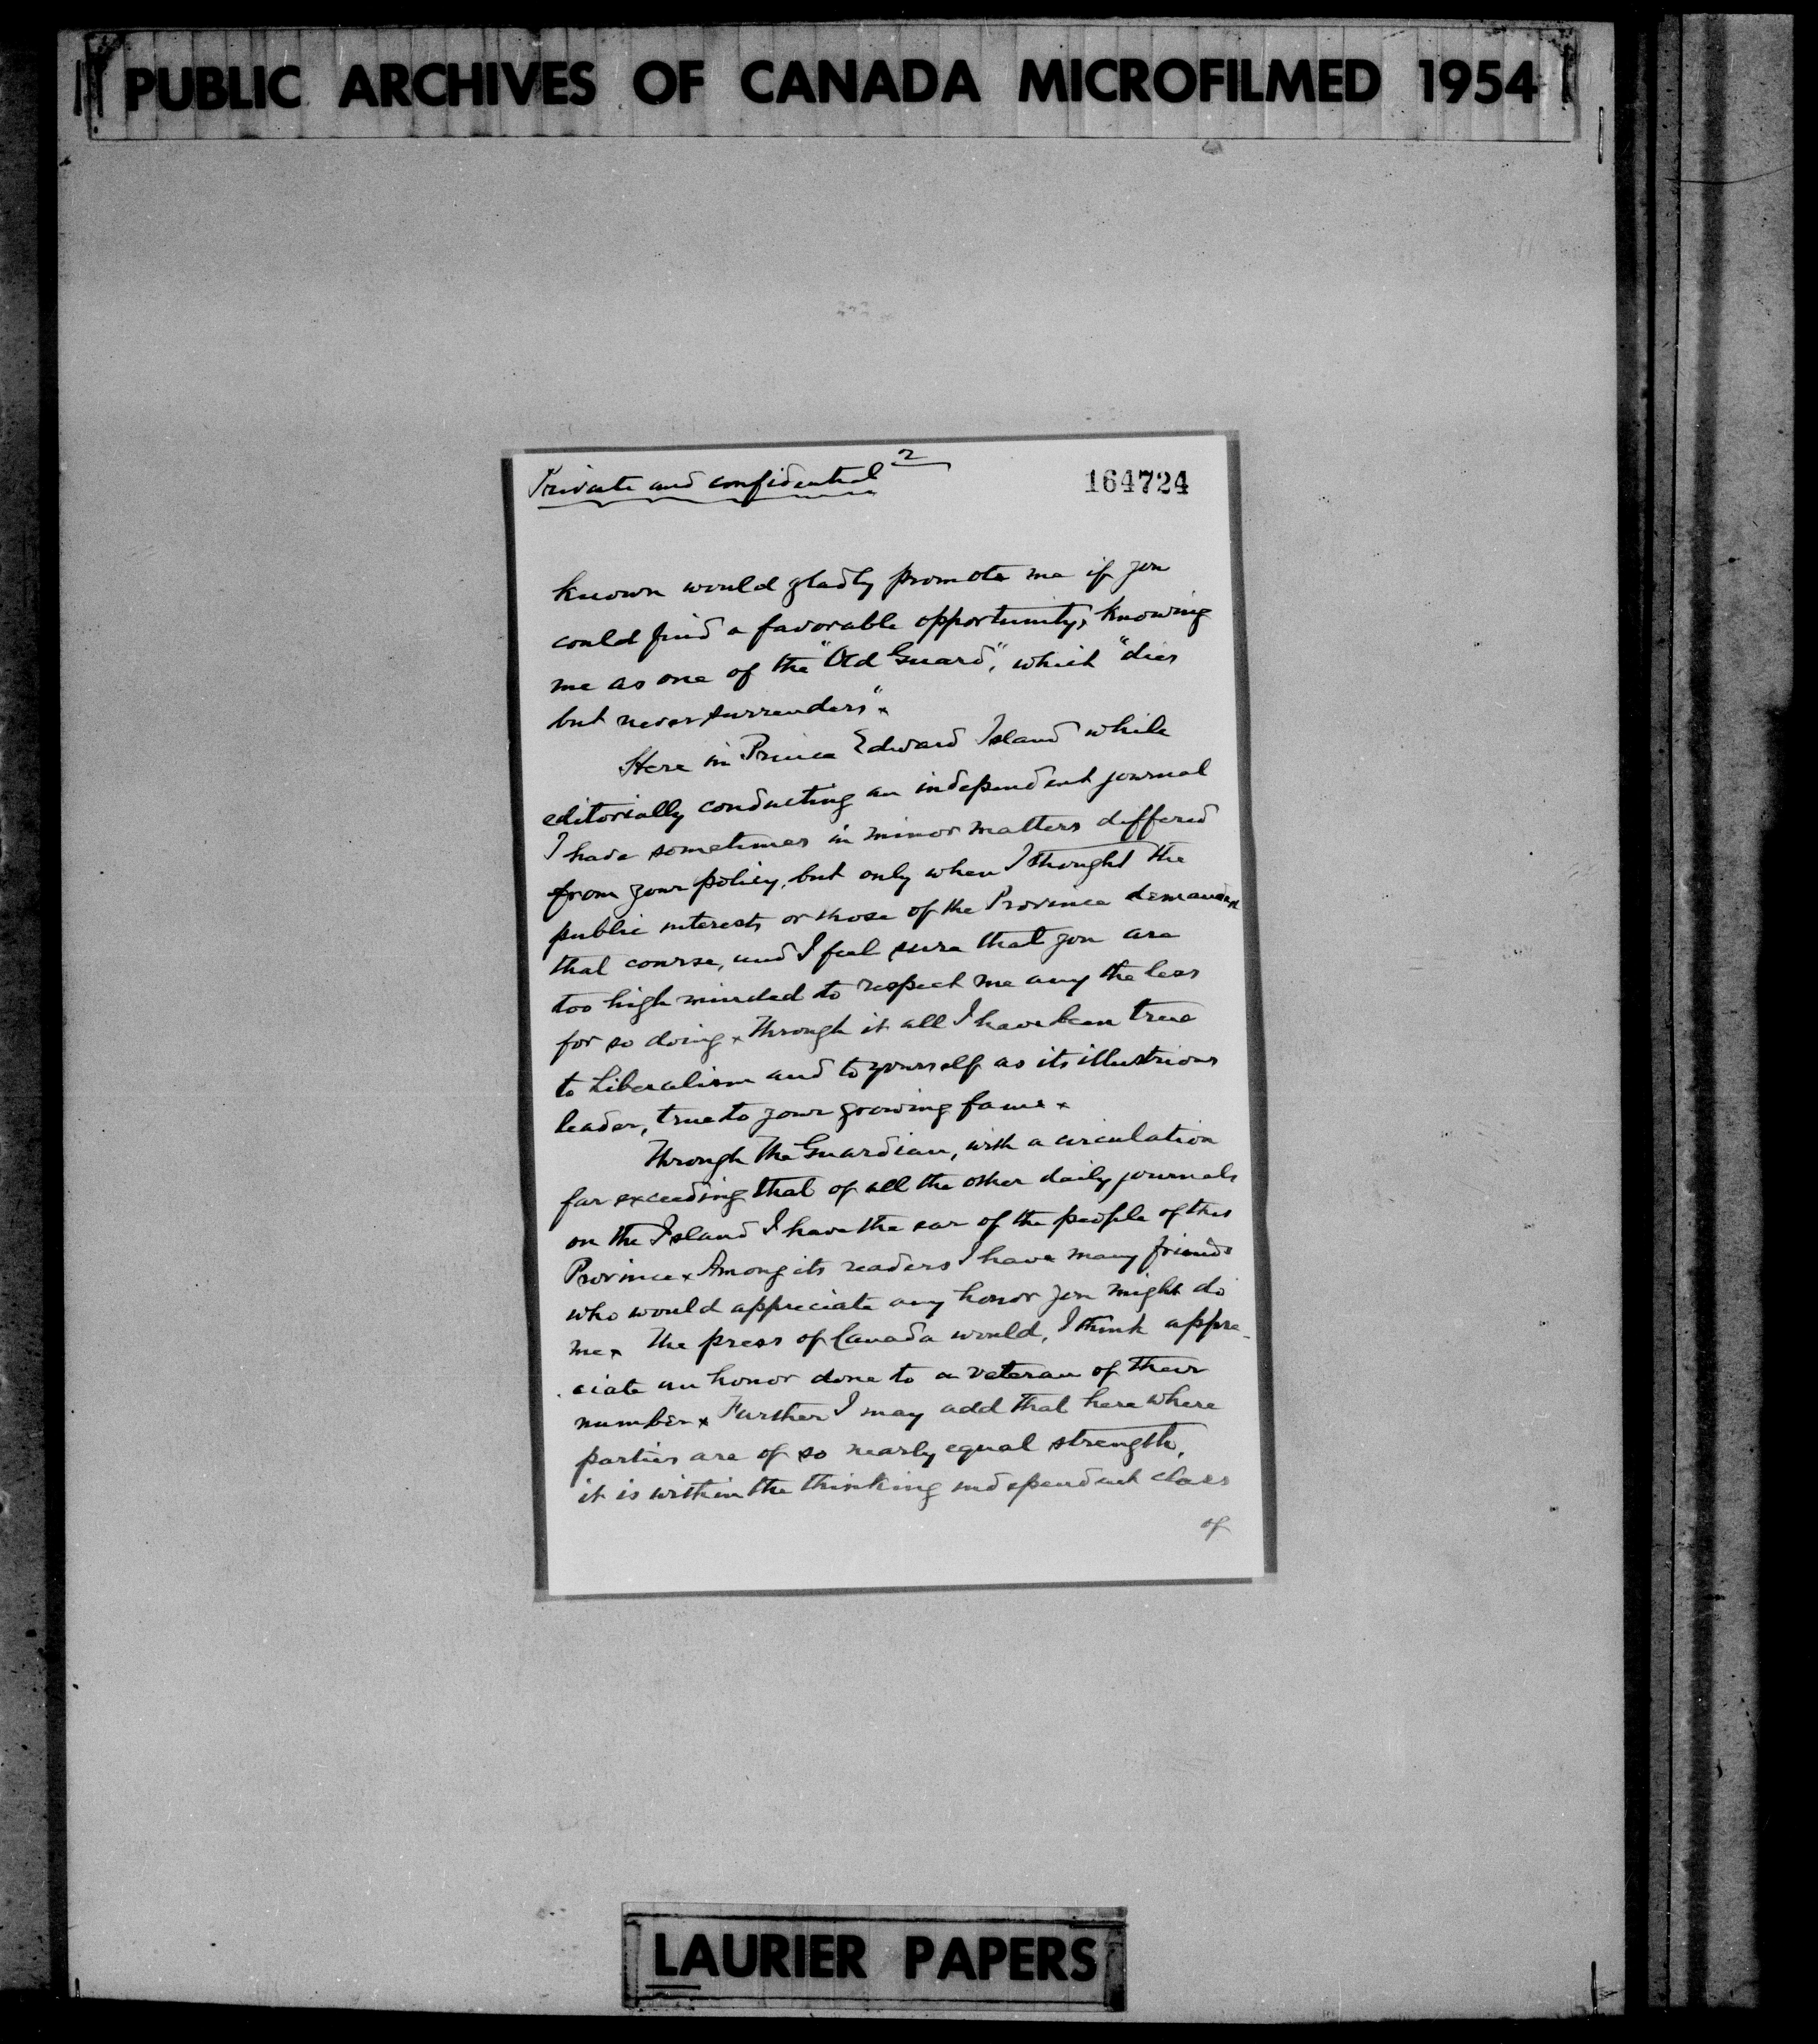 PUBLIC ARCHIVES OF CANADA MICROFILMED 1954
Private and confidential 2
164724
known would gladly promote me if you
could find a favorable opportunity, knowing
me as one of the "Old Guard", which "dies
but never surrenders" x
Here in Prince Edward Island while
editorially conducting an independent journal
I have sometimes in minor matters differed
from your policy, but only when I thought the
public interests or those of the Province demanded
that course, and I feel sure that you are
too high minded to respect me any the less
for so doing x Through it all I have been true
to Liberalism and to yourself as its illustrious
leader, true to your growing fame x
Through The Guardian, with a circulation
far exceeding that of all the other daily journals
on the Island I have the ear of the people of this
Province x Among its readers I have many friends
who would appreciate any honor you might do
me x The press of Canada would, I think appre-
ciate an honor done to a veteran of their
number x Further I may add that here where
parties are of so nearly equal strength,
it is within the thinking independent class
of
LAURIER PAPERS